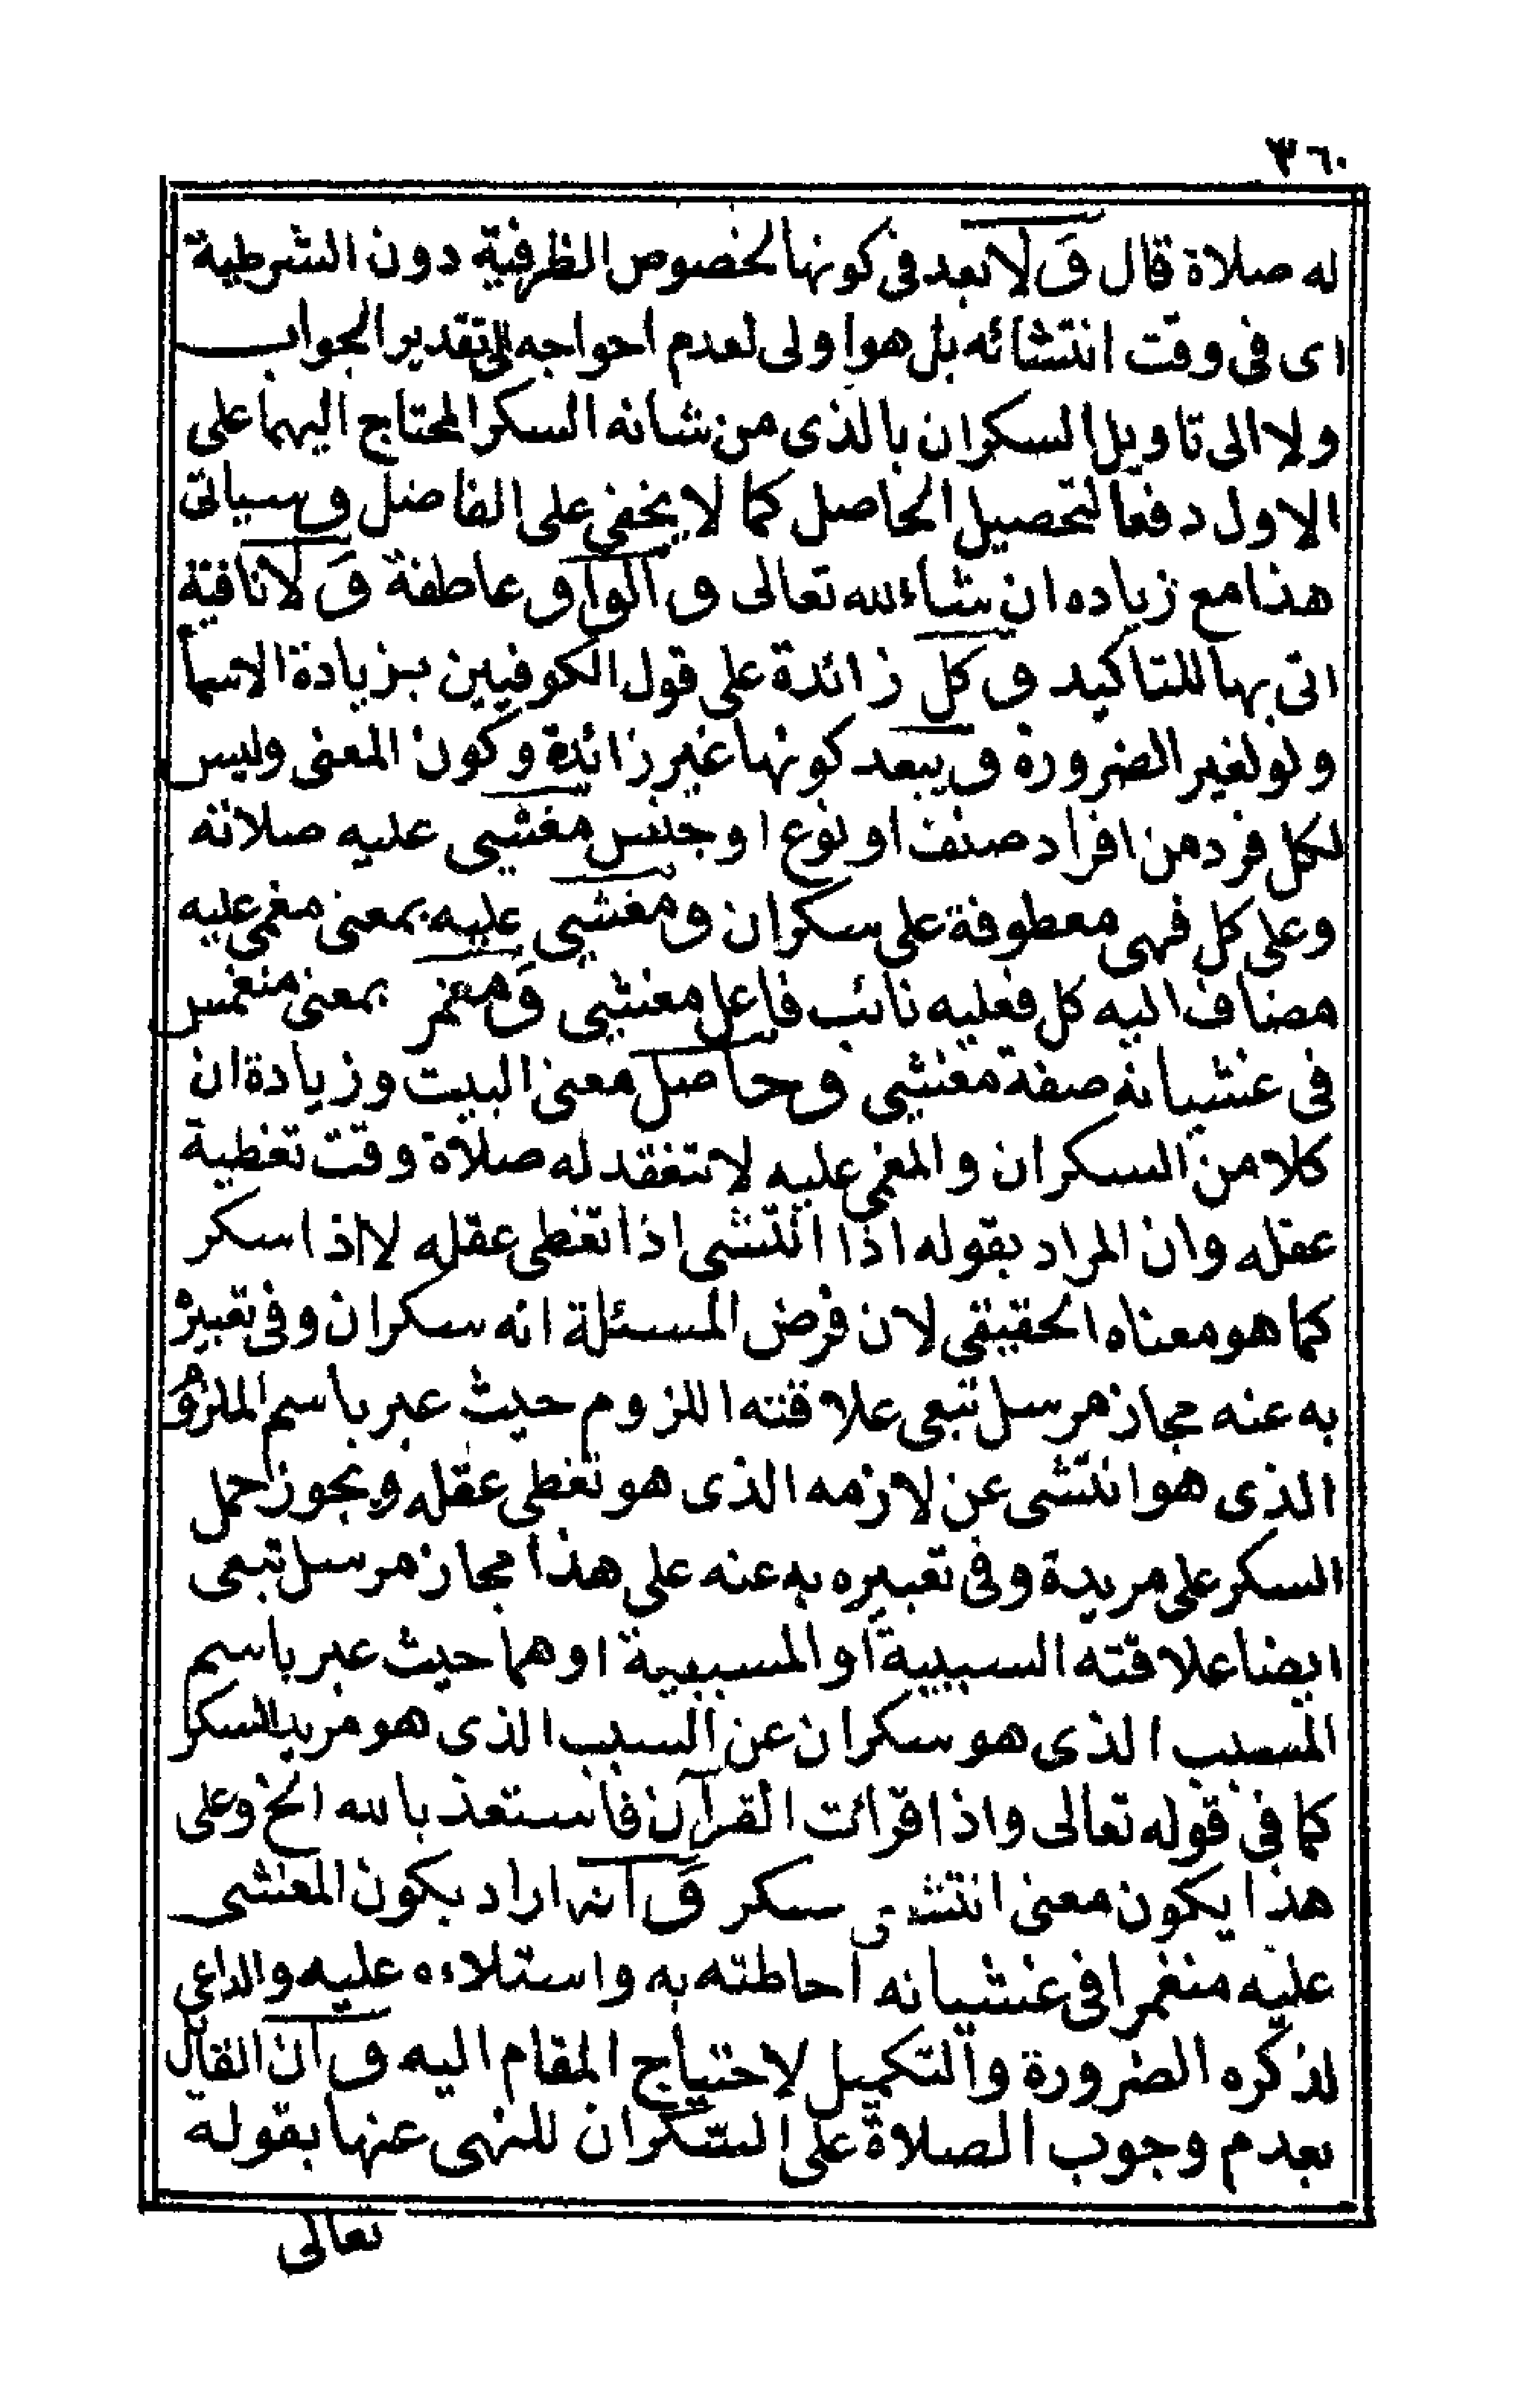 ٣٦٠
له صلاة قال وَلا بعد فى كونها لخصوص الظرفية دون الشرطية
اى فى وقت انتشائه بل هو اولى لعدم احواجه الى تقدير الجواب
ولا الى تاويل السكران بالذى من شانه السكر المحتاج اليهما على
الاول دفعا لتحصيل الحاصل كما لا يخفى على الفاضل وسياتى
هذا مع زياده ان شاء الله تعالى و الواو عاطفة وَ لا نافية
اتى بها للتاكيد و كل زائدة على قول الكوفيين بزيادة الاسما
ولو لغير الضرورة و يبعد كونها غير زائدة وكون المعنى وليس
لكل فرد من افراد صنف او نوع او جنس مغشيى عليه صلاته
وعلى كل فهى معطوفة على سكران و مغشيى عليه بمعنى مغمى عليه
مضاف اليه كل فعليه نائب فاعل مغشيى وَ منغمر بمعنى منغمس
فى غشيانه صفة مغشيى وحاصل معنى البيت وزيادة ان
كلا من السكران والمغمى عليه لا تنعقد له صلاة وقت تغطية
عقله وان المراد بقوله اذا انتشى اذا تغطى عقله لا اذا سكر
كما هو معناه الحقيقى لان فرض المسئلة انه سكران وفى تعبيره
به عنه مجاز مرسل تبعى علاقته اللزوم حيث عبر باسم الملزوم
الذى هو انتشى عن لازمه الذى هو تغطى عقله ويجوز حمل
السكر على مريدة وفى تعبيره به عنه على هذا مجاز مرسل تبعى
ايضا علاقته السببية او المسببية او هما حيث عبر باسم
المسبب الذى هو سكران عن السبب الذى هو مريد السكر
كما فى قوله تعالى واذا قرائت القرآن فاستعذ بالله الخ وعلى
هذا يكون معنى انتشى سكر وَ انه اراد بكون المغشى
عليه منغمرا فى غشيانه احاطته به واستلاءه عليه والداعى
لذكره الضرورة والتكميل لاحتياج المقام اليه و ان القائل
بعدم وجوب الصلاة على السكران للنهى عنها بقوله
تعالى